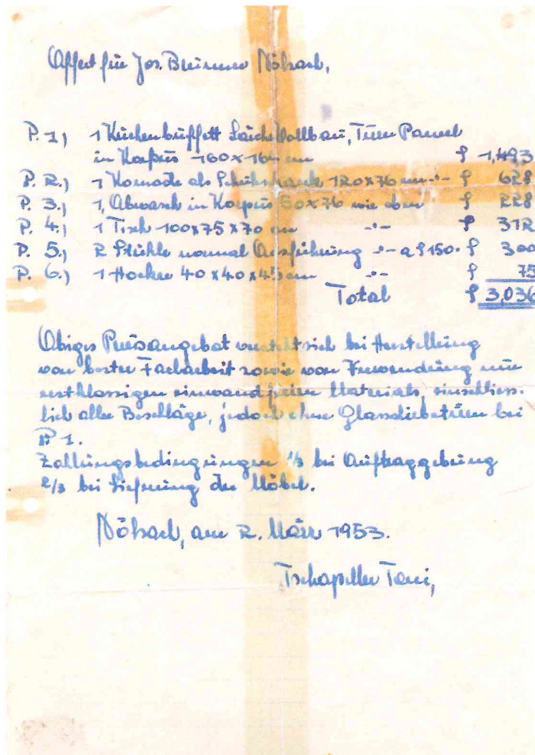 Offert für Jos. Brunner Nößach,
P. 1.) 1 Küchenbüffett Lärche Vollbau, Türe Paneel
in Korpus 160 x 164 cm S 1,493
P. 2.) 1 Komode als Schuhschrank 120x76 cm -"- S 628
P. 3.) 1, Abwasch in Korpus 50x76 wie oben S 228
P. 4.) 1 Tisch 100x75x70 cm -"- S 312
P. 5.) 2 Stühle normal Ausführung -"- a S 150. S 300
P. 6.) 1 Hocker 40x40x45 cm -"- S 75
Total S 3,036
Obiges Preisangebot versteht sich bei Herstellung
von bester Facharbeit sowie von Verwendung nur
erstklassigen einwandfreien Materials, einschliess-
lich aller Beschläge, jedoch ohne Glasschiebetüren bei
P 1.
Zahlungsbedingungen 1/3 bei Auftraggebung
2/3 bei Lieferung der Möbel.
Nößach, am 2. März 1953.
Tschapeller Toni,